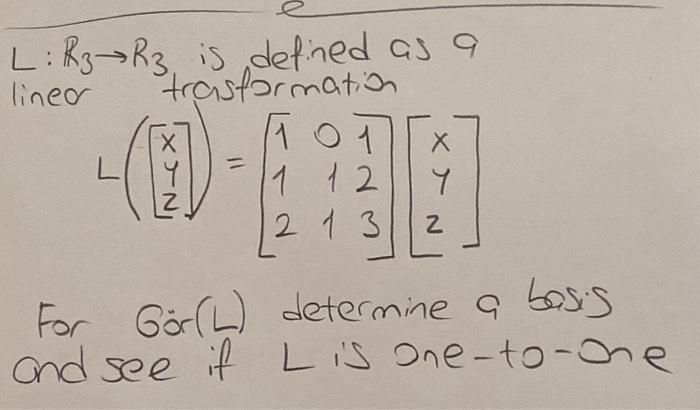 L: R3→R3 is defined as a
linear trasformation
L([x y z]) = [1 0 1 1 1 2 2 1 3] [x y z]
For Gör(L) determine a basis
and see if L is one-to-one